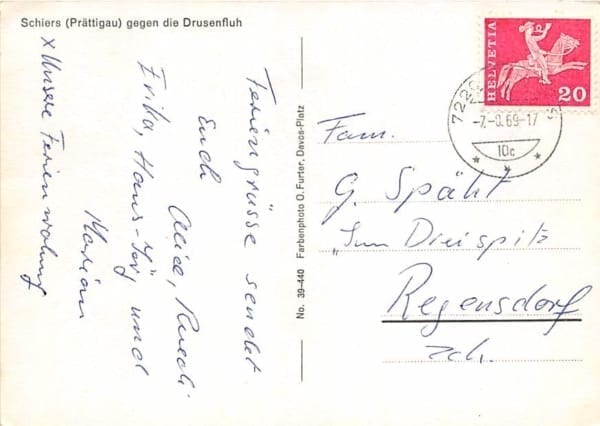 Schiers (Prättigau) gegen die Drusenfluh
x Unsere Ferienwohng
Feriengrüsse sendet
Euch
Alice, Ruedi
Erika, Hans-Jörg und
Marian
No. 39-440 Farbenphoto O. Furter, Davos-Platz
HELVETIA
20
7220
-7.-8.69-17
10c
Fam.
G. Späht
"Im Dreispitz
Regensdorf
Zch.